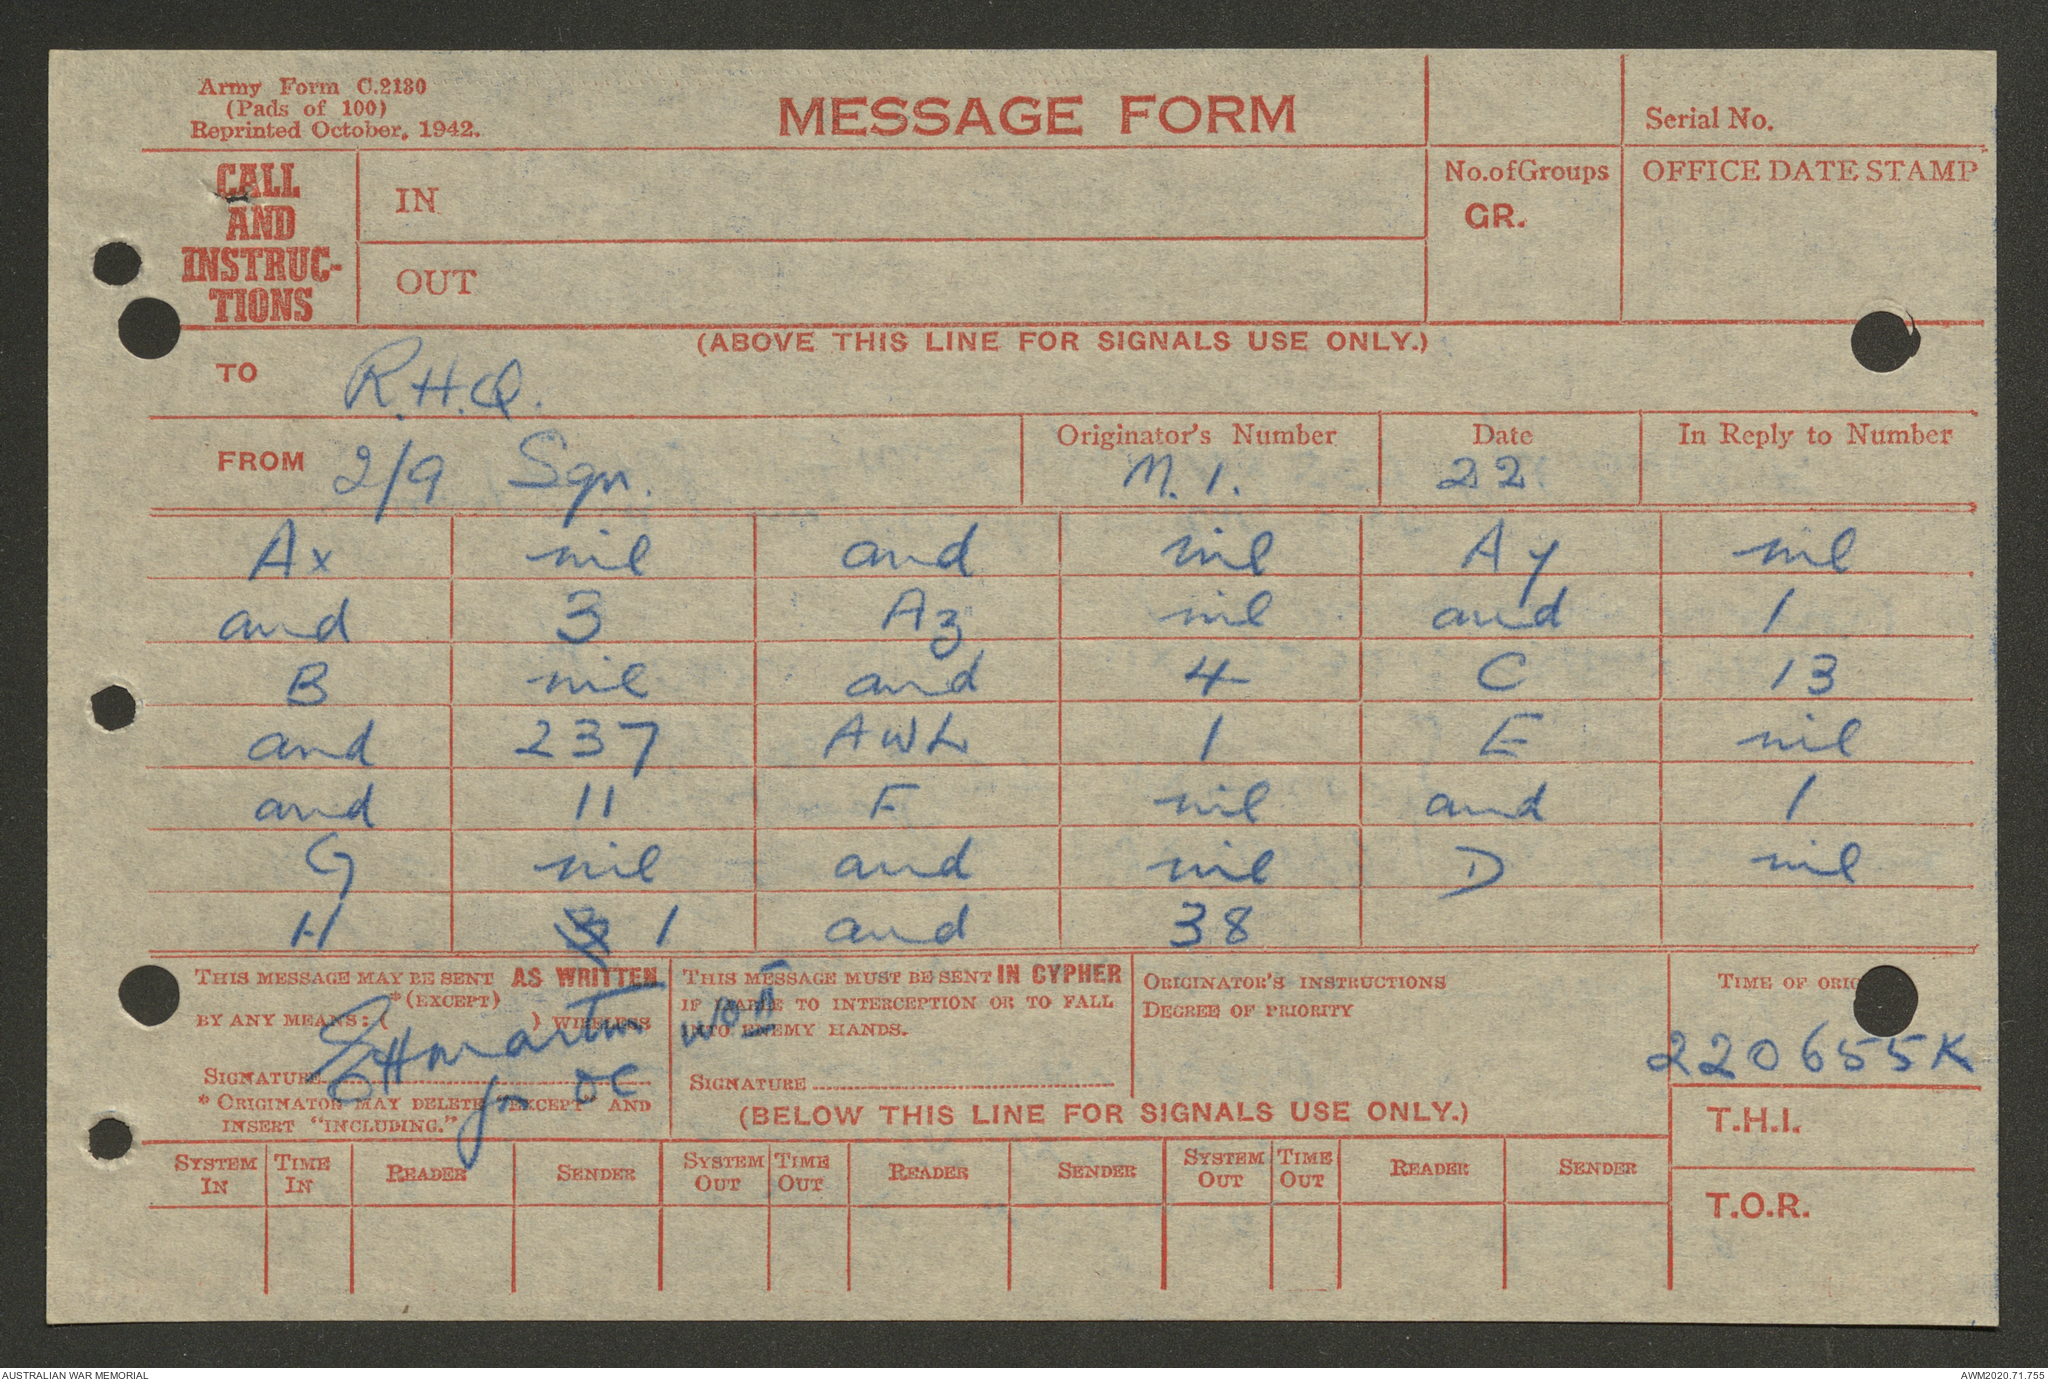 Army Form C.2130
(Pads of 100)
Reprinted October, 1942.
MESSAGE FORM
Serial No.
CALL AND INSTRUC-TIONS
IN
OUT
No. of Groups
GR.
OFFICE DATE STAMP
(ABOVE THIS LINE FOR SIGNALS USE ONLY.)
TO R.H.Q.
FROM 2/9 Sqn.
Originator's Number M. 1.
Date 22
In Reply to Number
Ax nil and nil Ay nil
and 3 Az nil and 1
B nil and 4 C 13
and 237 AWL 1 E nil
and 11 F nil and 1
G nil and nil D nil
H 1 and 38
THIS MESSAGE MAY BE SENT AS WRITTEN
*(EXCEPT)
BY ANY MEANS: ( ) WIRELESS
SIGNATURE
EHMartin WO II
for OC
* ORIGINATOR MAY DELETE "EXCEPT" AND
INSERT "INCLUDING."
THIS MESSAGE MUST BE SENT IN CYPHER
IF LIABLE TO INTERCEPTION OR TO FALL
INTO ENEMY HANDS.
SIGNATURE
ORIGINATOR'S INSTRUCTIONS
DEGREE OF PRIORITY
TIME OF ORIG
220655K
(BELOW THIS LINE FOR SIGNALS USE ONLY.)
T.H.I.
T.O.R.
SYSTEM IN TIME IN READER SENDER SYSTEM OUT TIME OUT READER SENDER SYSTEM OUT TIME OUT READER SENDER
AUSTRALIAN WAR MEMORIAL
AWM2020.71.755